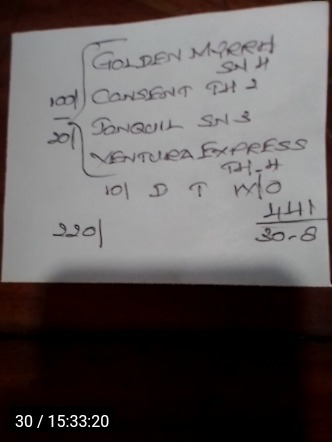 GOLDEN MYRRH
SN 4
100/ CONSENT TH 2
20/ JONQUIL SN 3
VENTURA EXPRESS
TH-4
10/ D T W/O
441
220/ 30-8
30 / 15:33:20